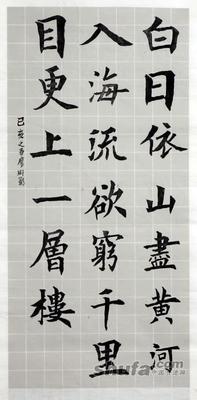 白日依山盡黃河
入海流欲窮千里
目更上一層樓
己亥之